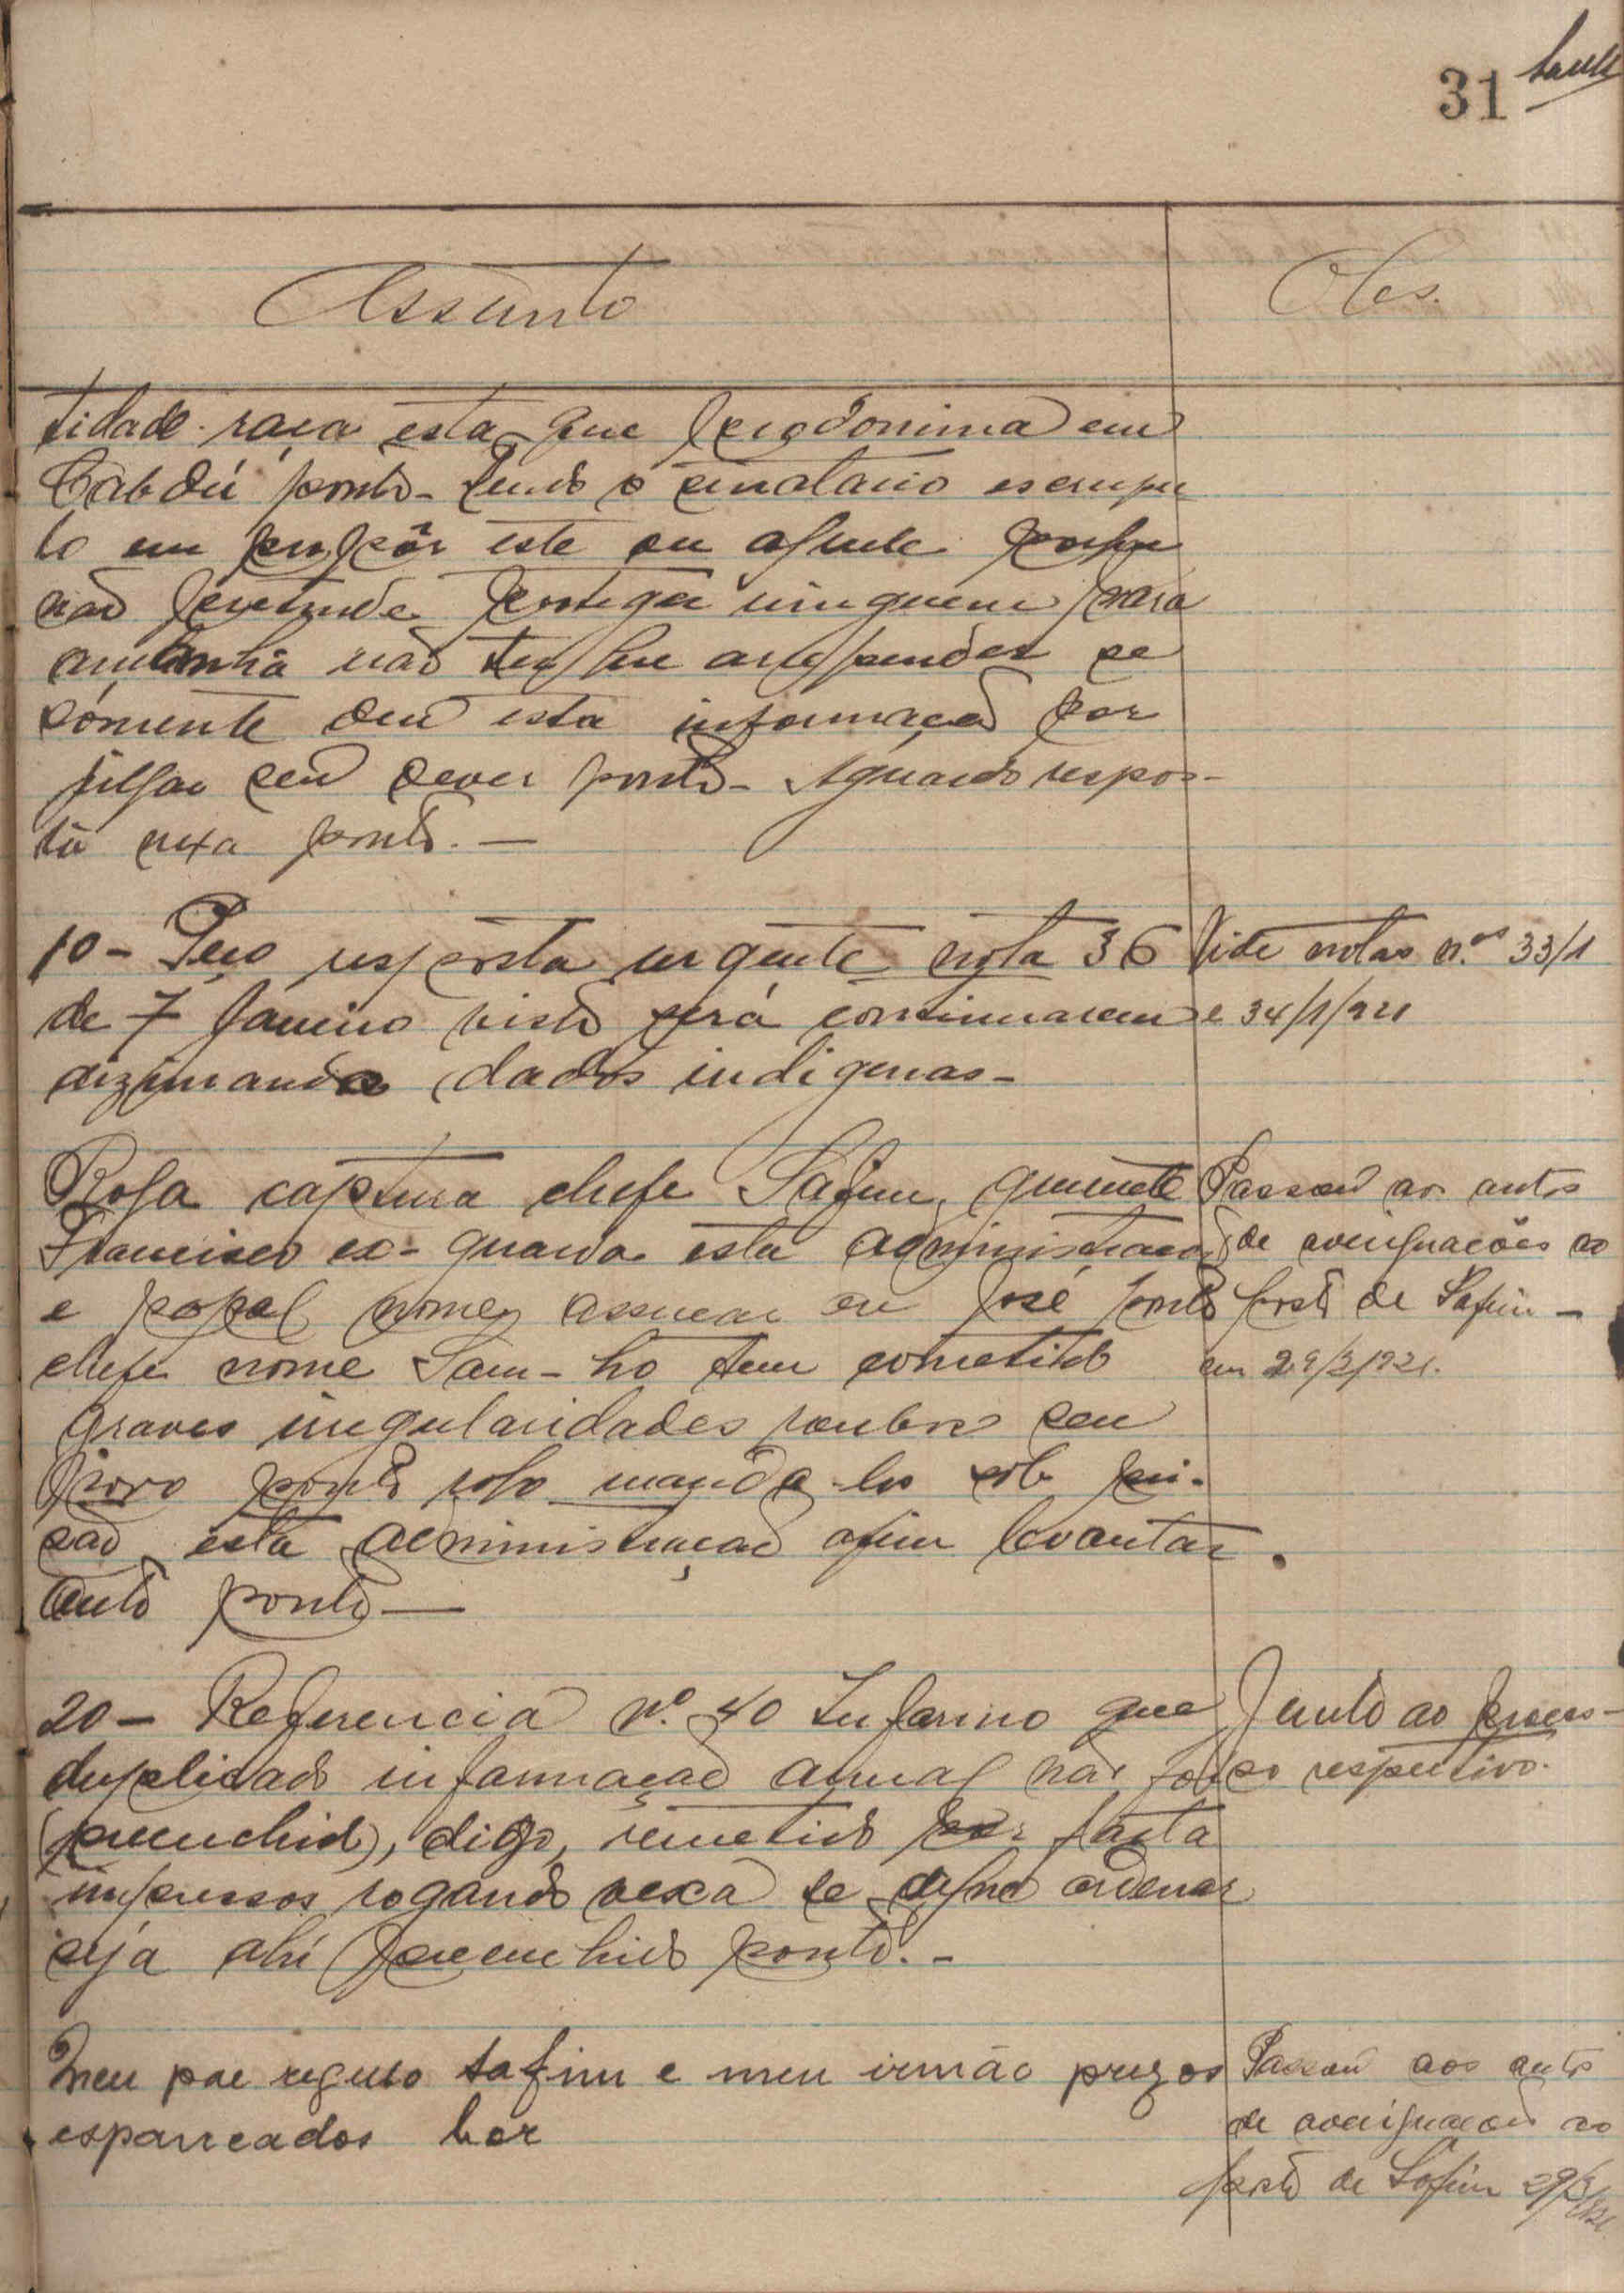 31
Assunto
Obs.
tidade raça esta que predomina em
Cabdú ponto - Tendo o sinatario escrupu
lo em propôr este ou aquele porque
não pretende proteger ninguem para
amanhã não ter que arrepender se
sómente deu esta informação por
julgar seu dever ponto - Aguardo respos-
ta vexa ponto. —
10 - Peço resposta urgente nota 36
de 7 Janeiro visto será continuarem
dizimando dados indigenas -
Vide notas n.os 33/1
e 34/1/921
Rogo captura chefe Safim, grumete
Francisco ex-guarda esta administração
e papel nome assucar ou José ponto
chefe nome Sam-ho tem cometido
graves irregularidades roubos seu
povo ponto rogo manda-los sob pri-
são esta administração afim levantar
auto ponto —
Passou aos autos
de averiguações ao
posto de Safim -
em 29/3/921.
20 - Referencia n.º 40 Informo que
duplicado informação anual não foi
(preenchido), digo, remetido por falta
impressos rogando vexa se digne ordenar
seja ahi preenchido ponto. -
Junto ao proces-
so respectivo.
Meu pae regulo Safim e meu irmão prezos
espancados hor
Passou aos autos
de averiguações ao
posto de Safim 29/3/921.